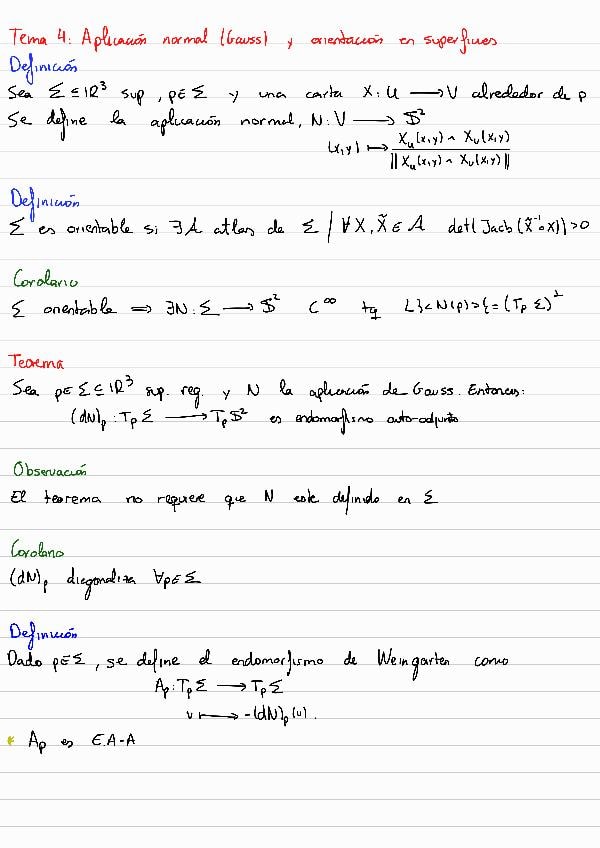 Tema 4: Aplicación normal (Gauss) y orientación en superficies
Definición
Sea Σ ⊆ ℝ³ sup, p∈Σ y una carta X: U ⟶ V alrededor de p
Se define la aplicación normal, N: V ⟶ 𝕊²
(x,y) ⟼ X_u(x,y) ∧ X_v(x,y) / ‖X_u(x,y) ∧ X_v(x,y)‖
Definición
Σ es orientable si ∃A atlas de Σ / ∀X, X̃ ∈ A det(Jacb(X̃⁻¹∘X))>0
Corolario
Σ orientable ⟹ ∃N: Σ ⟶ 𝕊² C^∞ tq L}<N(p)>{=(T_pΣ)^⊥
Teorema
Sea p∈Σ⊆ℝ³ sup. reg. y N la aplicación de Gauss. Entonces:
(dN)_p: T_pΣ ⟶ T_p𝕊² es endomorfismo auto-adjunto
Observación
El teorema no requiere que N este definido en Σ
Corolario
(dN)_p diagonaliza ∀p∈Σ
Definición
Dado p∈Σ, se define el endomorfismo de Weingarten como
A_p: T_pΣ ⟶ T_pΣ
v ⟼ -(dN)_p(v).
* A_p es E.A-A